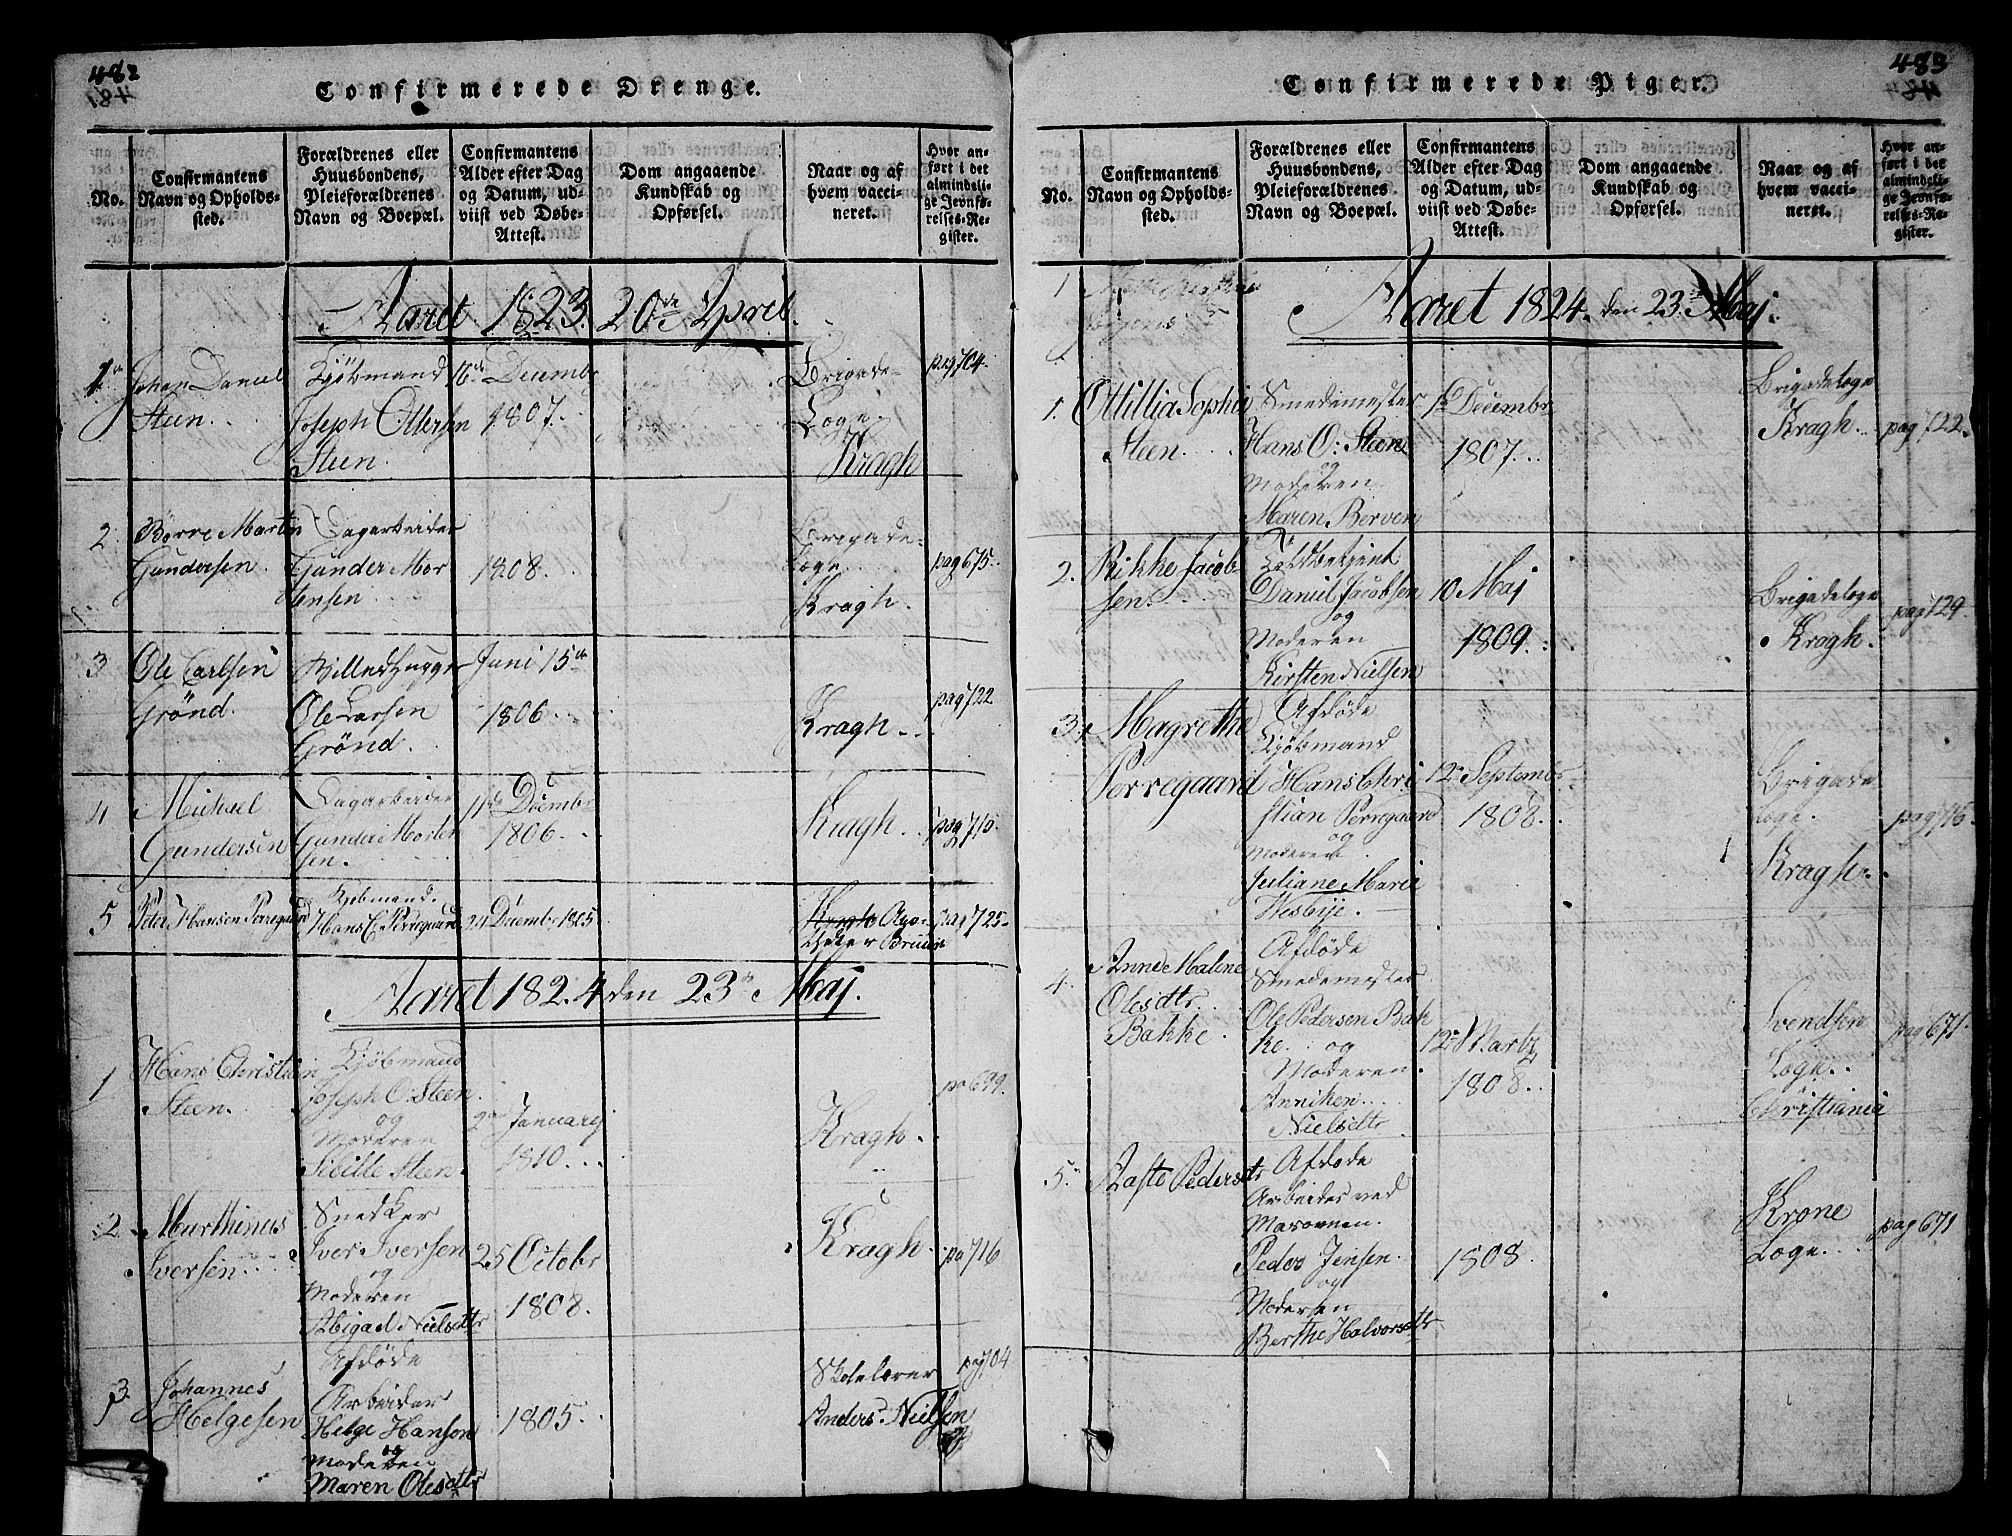 482
Confirmerede Drenge.
No.
Confirmantens
Navn og Opholds-
sted.
Forældrenes eller
Huusbondens,
Pleieforældrenes
Navn og Boepæl.
Confirmantens
Alder efter Dag
og Datum, ud-
viist ved Døbe-
Attest.
Dom angaaende
Kundskab og
Opførsel.
Naar og af
hvem vacci-
neret.
Hvor an-
ført i det
almindeli-
ge Jevnfø-
relses-Re-
gister.
Aaret 1823. 20de April.
1
Johan Daniel
Steen.
Kjöbmand
Joseph Ottersen
Steen.
16de Decembr
1807.
Brigade-
Læge
Kragh
pag 704.
2
Börre Martin
Gundersen
Dagarbeider
Gunder Mor
tensen
1808.
Brigade-
Læge
Kragh.
pag 675.
3
Ole Carlsen
Grönd.
Billedhugger
Ole Larsen
Grönd.
Juni 15de
1806.
Kragh.
pag 722.
4
Michael
Gundersen
Dagarbeider
Gunder Morten
sen.
11de Decembr
1806.
Kragh.
pag 715.
5
Peter Hansen Perregaard
Kjöbmand.
Hans C. Perregaard
24 Decembr 1805
Kragh Apo-
theker Bruun
pag 725.
Aaret 1824 den 23de Maj.
1
Hans Christian
Steen.
Kjöbmand
Joseph O: Steen.
og
Moderen
Sibille Steen.
2den January
1810.
Kragh.
pa 699.
2
Marthinus
Iversen
Snedker
Iver Iversen
og
Moderen
Abigael Nielsdtr
25 Octobr
1808.
Kragh.
pa 716
3
Johannes
Helgesen
Afdöde
Arbeider
Helge Hanson
og
Moderen
Maren Olesdtr
1805.
Skolelærer
Anders Nielsen
pag 704
483
Confirmerede Piger.
No.
Confirmantens
Navn og Opholds-
sted.
Forældrenes eller
Huusbondens,
Pleieforældrenes
Navn og Boepæl.
Confirmantens
Alder efter Dag
og Datum, ud-
viist ved Døbe-
Attest.
Dom angaaende
Kundskab og
Opførsel.
Naar og af
hvem vacci-
neret.
Hvor an-
ført i det
almindeli-
ge Jevnfø-
relses-Re-
gister.
Aaret 1824. den 23de Maj.
1.
Ottillia Sophia
Steen.
Smedemester
Hans O: Steen
og
Moderen
Maren Berven
1de Decembr
1807.
Brigadelæge
Kragh.
pag 722.
2.
Rikke Jacob-
sen.
Toldbetjent
Daniel Jacobsen
og
Moderen
Kirsten Nielsen
10 Maj
1809.
Brigadelæge
Kragh.
pag 729.
3.
Magrethe
Perregaard
Afdöde
Kjöbmand
Hans Chri
stian Perregaard
og
Moderen
Juliane Marie
Wesbye.
12te Septembr
1808.
Brigade-
Læge.
Kragh.
pag 716.
4.
Anne Malene
Olesdtr.
Bakke.
Afdöde
Smedemester
Ole Pedersen Bak
ke. og
Moderen.
Anniken
Nielsdtr
12te Martz
1808.
Svendsen
Læge.
Christiania
pag 671.
5.
Aaste Pedersdtr
Afdöde
Arbeider ved
Masovnen.
Peder Jensen
og
Moderen
Berthe Halvorsdtr
1808.
Krone
Læge.
pag 671